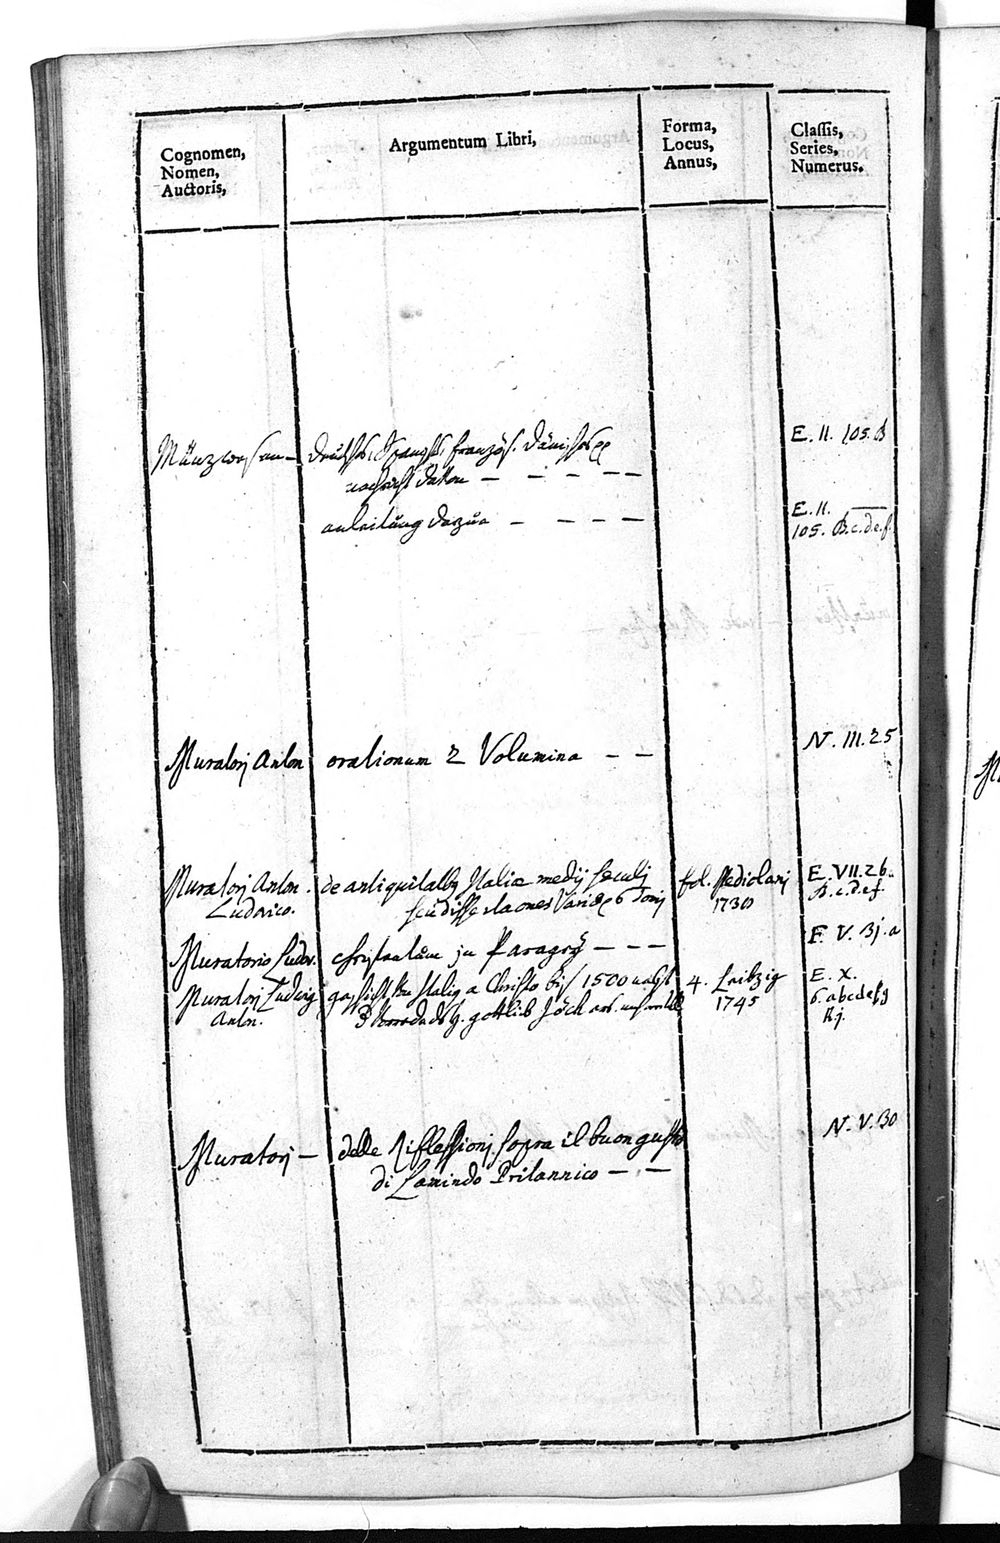 Cognomen,
Nomen,
Auctoris,
Argumentum Libri,
Forma,
Locus,
Annus,
Classis,
Series,
Numerus.
Münzwesen —
E. II. 105. B
nachricht — — — —
anleitung dazue — — — —
E. II.
105. B.c.de.f.
Muratorj Anton
orationum 2 Volumina — —
N. III. 25
Muratorj Anton.
Ludovico.
de antiquitatby Italiæ medij seculj
6 Tomj
fol. Mediolanj
1738
E. VII. 26.
B.c.d.e.f.
Muratorio Ludov.
christentum in Paragey — — —
E. V. 3j. a
Muratorj Ludwig
Anton.
geschichte Italig a Christo biß 1500
gottlieb Jöch
4. Leibzig
1745
E. X.
6. abcdefg
hj.
Muratorj —
delle Riflessionj sopra il buon gusto
di Lamindo Pritannico — —
N. V. 30